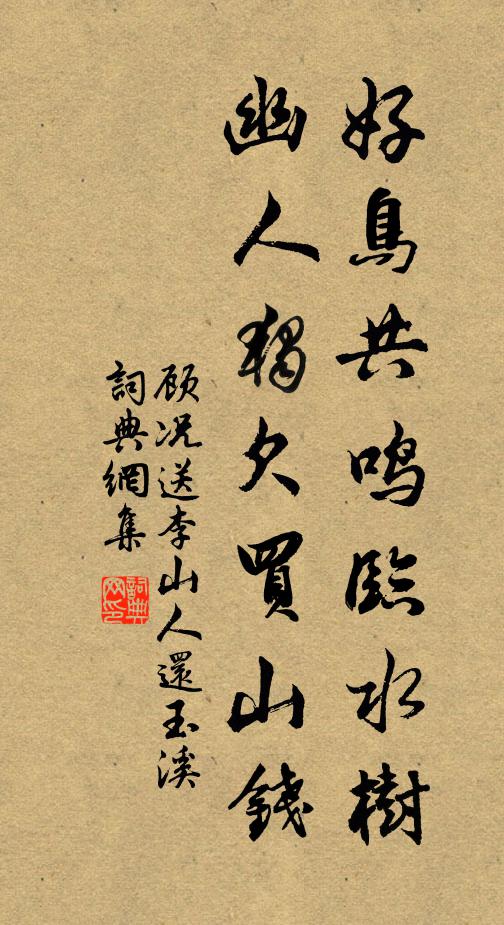 好鳥共鳴臨水樹
幽人獨欠買山錢
顾况送李山人還玉溪
詞典網集
詞典網印